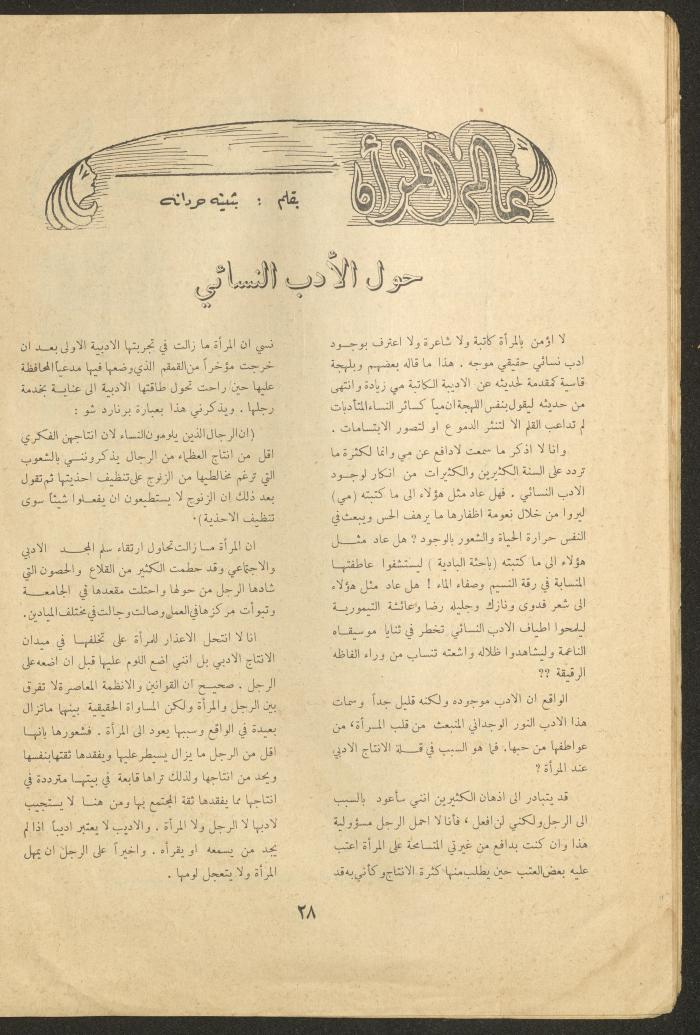 عالم المرأة
بقلم : بثينه حردانه
حول الأدب النسائي
لا اؤمن بالمرأة كاتبة ولا شاعرة ولا اعترف بوجود
ادب نسائي حقيقي موجه . هذا ما قاله بعضهم وبلهجة
قاسية كمقدمة لحديثه عن الاديبة الكاتبة مي زيادة وانتهى
من حديثه ليقول بنفس اللهجة ان مياً كسائر النساء المتأدبات
لم تداعب القلم الا لتنثر الدموع او لتصور الابتسامات .
وانا لا اذكر ما سمعت لادافع عن مي وانما لكثرة ما
تردد على السنة الكثيرين والكثيرات من انكار لوجود
الادب النسائي . فهل عاد مثل هؤلاء الى ما كتبته (مي)
ليروا من خلال نعومة اظفارها ما يرهف الحس ويبعث في
النفس حرارة الحياة والشعور بالوجود ؟ هل عاد مثل
هؤلاء الى ما كتبته (باحثة البادية) ليستشفوا عاطفتها
المنسابة في رقة النسيم وصفاء الماء ! هل عاد مثل هؤلاء
الى شعر فدوى ونازك وجليله رضا وعائشة التيمورية
ليلمحوا اطياف الادب النسائي تخطر في ثنايا موسيقاه
الناعمة وليشاهدوا ظلاله واشعته تنساب من وراء الفاظه
الرقيقة ؟؟
الواقع ان الادب موجوده ولكنه قليل جداً وسمات
هذا الادب النور الوجداني المنبعث من قلب المرأة ، من
عواطفها من حبها . فما هو السبب في قلة الانتاج الادبي
عند المرأة ؟
قد يتبادر الى اذهان الكثيرين انني سأعود بالسبب
الى الرجل ولكني لن افعل ، فأنا لا احمل الرجل مسؤولية
هذا وان كنت بدافع من غيرتي المتسامحة على المرأة اعتب
عليه بعض العتب حين يطلب منها كثرة الانتاج وكأني به قد
نسي ان المرأة ما زالت في تجربتها الادبية الاولى بعد ان
خرجت مؤخراً من القمقم الذي وضعها فيها مدعياً المحافظة
عليها حين راحت تحول طاقتها الادبية الى عناية بخدمة
رجلها . ويذكرني هذا بعبارة برنارد شو :
(ان الرجال الذين يلومون النساء لان انتاجهن الفكري
اقل من انتاج العظماء من الرجال يذكرونني بالشعوب
التي ترغم مخالطيها من الزنوج على تنظيف احذيتها ثم تقول
بعد ذلك ان الزنوج لا يستطيعون ان يفعلوا شيئاً سوى
تنظيف الاحذية) .
ان المرأة ما زالت تحاول ارتقاء سلم المجد الادبي
والاجتماعي وقد حطمت الكثير من القلاع والحصون التي
شادها الرجل من حولها واحتلت مقعدها في الجامعة
وتبوأت مركزها في العمل وصالت وجالت في مختلف الميادين.
انا لا انتحل الاعذار للمرأة على تخلفها في ميدان
الانتاج الادبي بل انني اضع اللوم عليها قبل ان اضعه على
الرجل . صحيح ان القوانين والانظمة المعاصرة لا تفرق
بين الرجل والمرأة ولكن المساواة الحقيقية بينها ماتزال
بعيدة في الواقع وسببها يعود الى المرأة . فشعورها بانها
اقل من الرجل ما يزال يسيطر عليها ويفقدها ثقتها بنفسها
ويحد من انتاجها ولذلك تراها قابعة في بيتها مترددة في
انتاجها مما يفقدها ثقة المجتمع بها ومن هنا لا يستجيب
لادبها لا الرجل ولا المرأة . والاديب لا يعتبر اديباً اذا لم
يجد من يسمعه او يقرأه . واخيراً على الرجل ان يمهل
المرأة ولا يتعجل لومها .
٢٨